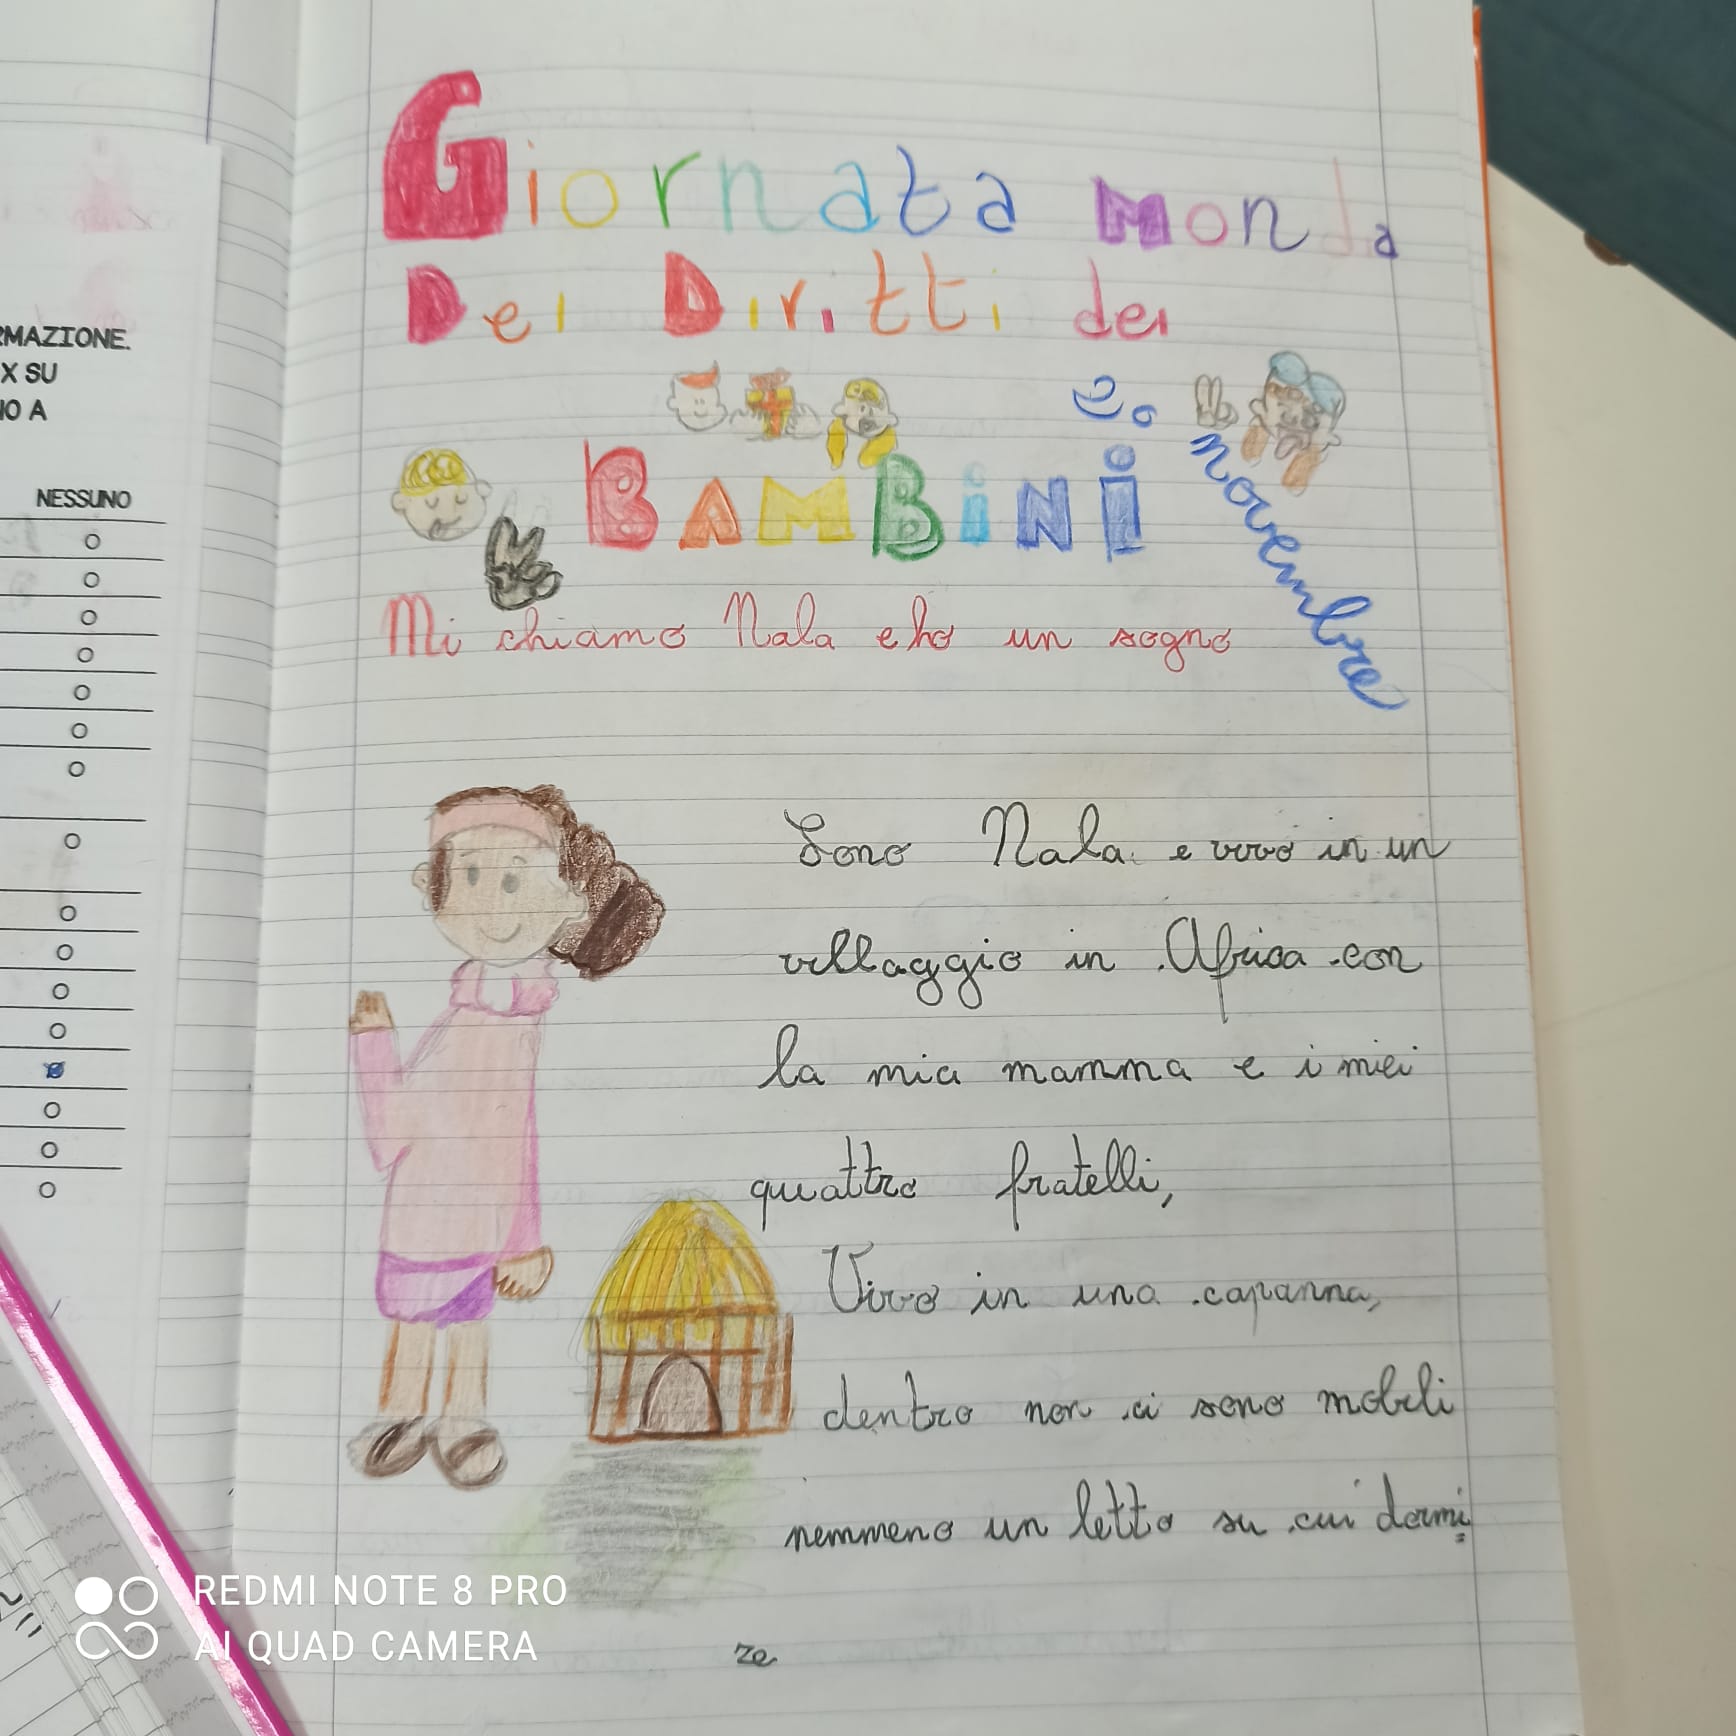 Giornata Monda
Dei Diritti dei
20
novembre
BAMBiNi
Mi chiamo Nala e ho un sogno
Sono Nala e vivo in un
villaggio in Africa con
la mia mamma e i miei
quattro fratelli,
Vivo in una capanna,
dentro non ci sono mobili
nemmeno un letto su cui dormi
RMAZIONE.
X SU
NO A
NESSUNO
REDMI NOTE 8 PRO
AI QUAD CAMERA